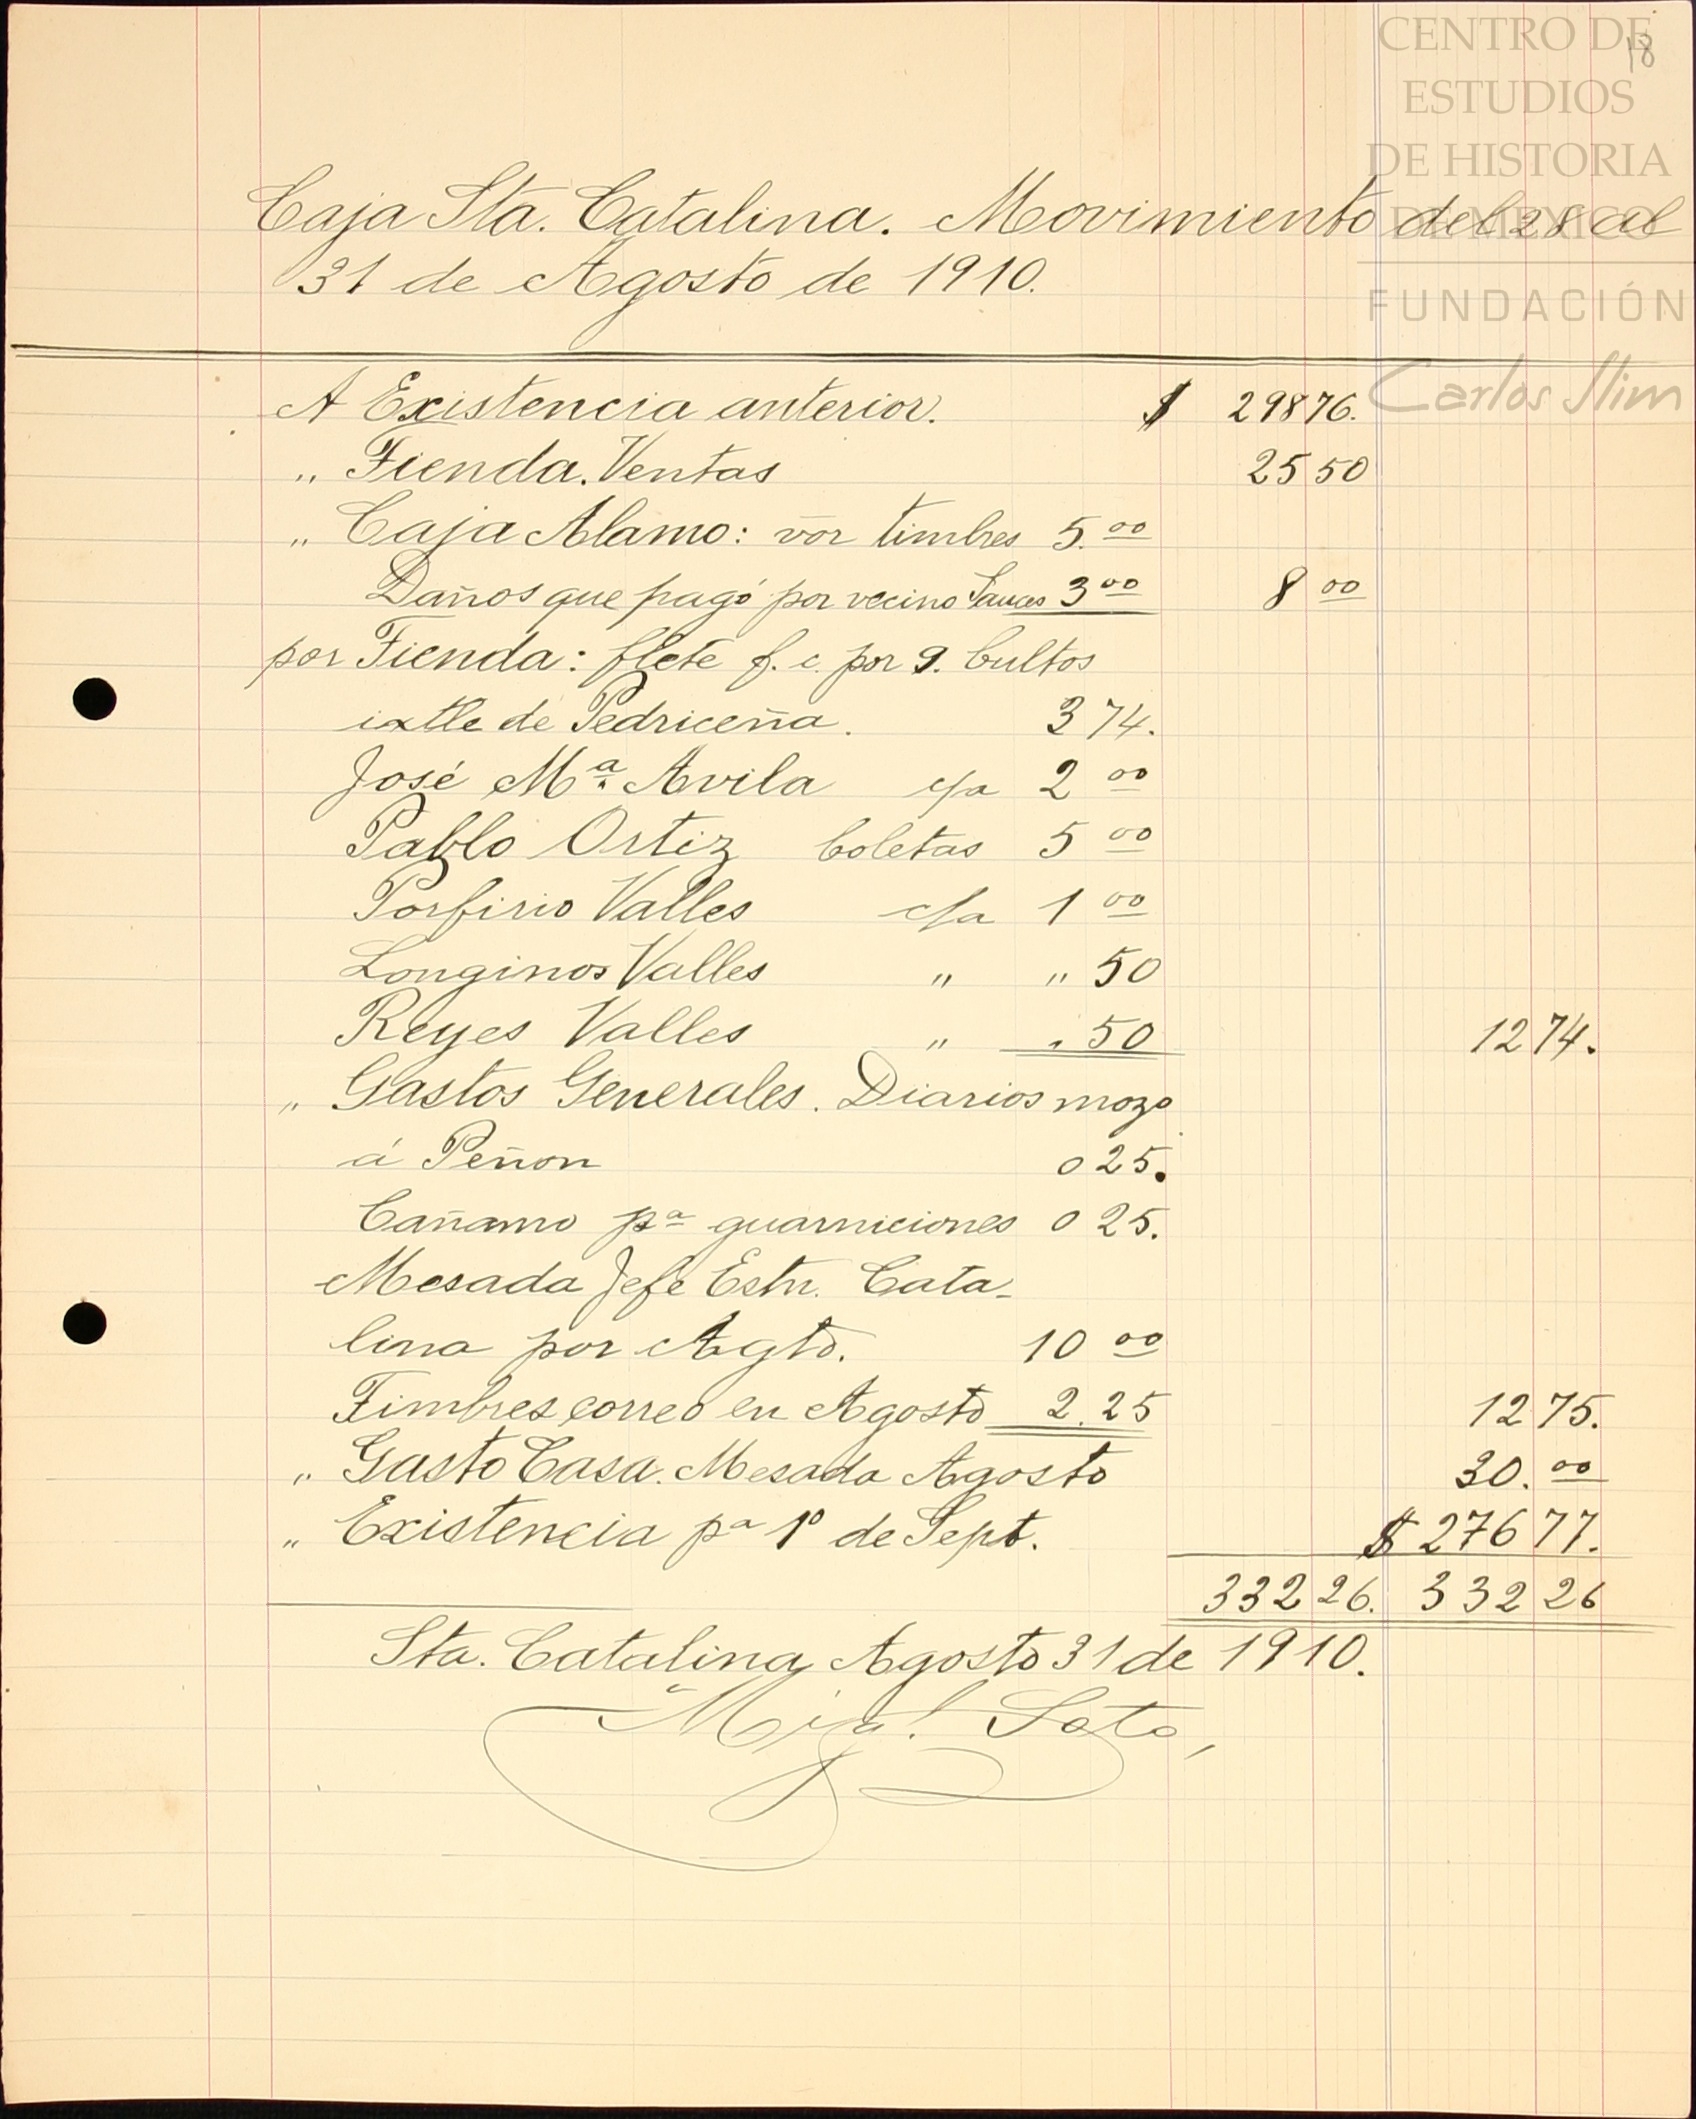 18
CENTRO DE
ESTUDIOS
DE HISTORIA
DE MEXICO
FUNDACIÓN
Carlos Slim
Caja Sta. Catalina. Movimiento del 28 al
31 de Agosto de 1910.
A Existencia anterior. $ 298 76.
„ Tienda. Ventas 25 50
„ Caja Alamo: por timbres 5.00
Daños que pagó por vecino Sauces 3 00 8 00
por Tienda: flete f. c. por 9. bultos
ixtle de Pedriceña. 3 74.
José Ma. Avila c/a 2 00
Pablo Ortiz boletas 5 00
Porfirio Valles c/a 1 00
Longinos Valles „ „ 50
Reyes Valles „ „ 50 12 74.
„ Gastos Generales. Diarios mozo
á Peñon 0 25.
Cañamo pa guarniciones 0 25.
Mesada Jefe Estn. Cata-
lina por Agto. 10 00
Timbres correo en Agosto 2.25 12 75.
„ Gasto Casa. Mesada Agosto 30.00
„ Existencia pa 1º de Sept. $ 276 77.
332 26. 332 26
Sta. Catalina Agosto 31 de 1910.
Migl. Soto,